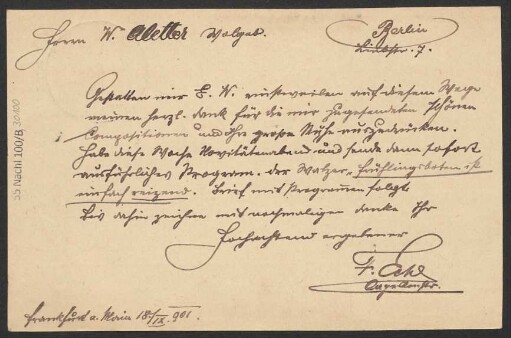 Herrn W. Aletter Wolgeb.
Berlin
Lindstr. 7.
Gestatten mir E. W. einstweilen auf diesem Wege
meinen herzl. Dank für die mir zugesandten schönen
Compositionen und Ihre große Mühe auszudrücken.
Habe diese Woche Novitätenabend und sende dann sofort
ausführliches Programm. Der Walzer, Frühlingsboten ist
einfach reizend. Brief mit Programm folgt
Bis dahin zeichne mit nochmaligem Danke Ihr
Hochachtend ergebener
F.
Capellmstr.
Frankfurt a. Main 18/IX. 901.
55 Nachl 100/B